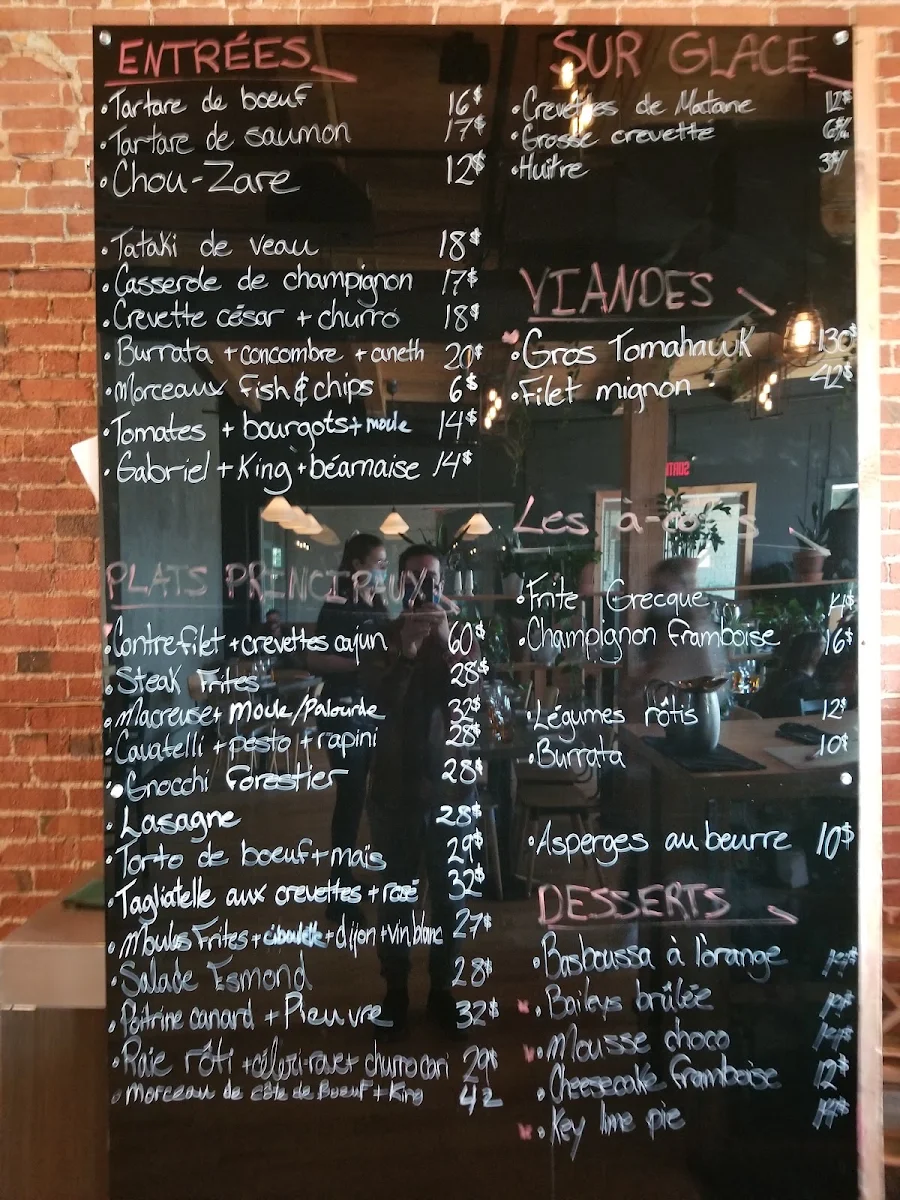 ENTRÉES
• Tartare de boeuf 16$
• Tartare de saumon 17$
• Chou-Zare 12$
• Tataki de veau 18$
• Casserole de champignon 17$
• Crevette césar + churro 18$
• Burrata + concombre + aneth 20$
• Morceaux Fish & chips 6$
• Tomates + bourgots + moule 14$
• Gabriel + King + béarnaise 14$
PLATS PRINCIPAUX
• Contre-filet + crevettes cajun 60$
• Steak Frites 28$
• Macreuse + Moule/Palourde 32$
• Cavatelli + pesto + rapini 28$
• Gnocchi Forestier 28$
• Lasagne 28$
• Torto de boeuf + maïs 29$
• Tagliatelle aux crevettes + rosé 32$
• Moules Frites + ciboulette + dijon + vin blanc 27$
• Salade Esmond 28$
• Poitrine canard + Pieuvre 32$
• Raie rôti + céleri-rave + churro cari 29$
• Morceau de côte de Boeuf + King 42
SUR GLACE
• Crevettes de Matane 12$
• Grosse crevette
• Huître
VIANDES
• Gros Tomahawk 130$
• Filet mignon 42$
SORTIE
Les à-côtés
• Frite Grecque 14$
• Champignon framboise 16$
• Légumes rôtis 12$
• Burrata 10$
• Asperges au beurre 10$
DESSERTS
• Basboussa à l'orange
• Baileys brûlée
• Mousse choco
• Cheesecake framboise 12$
• Key lime pie